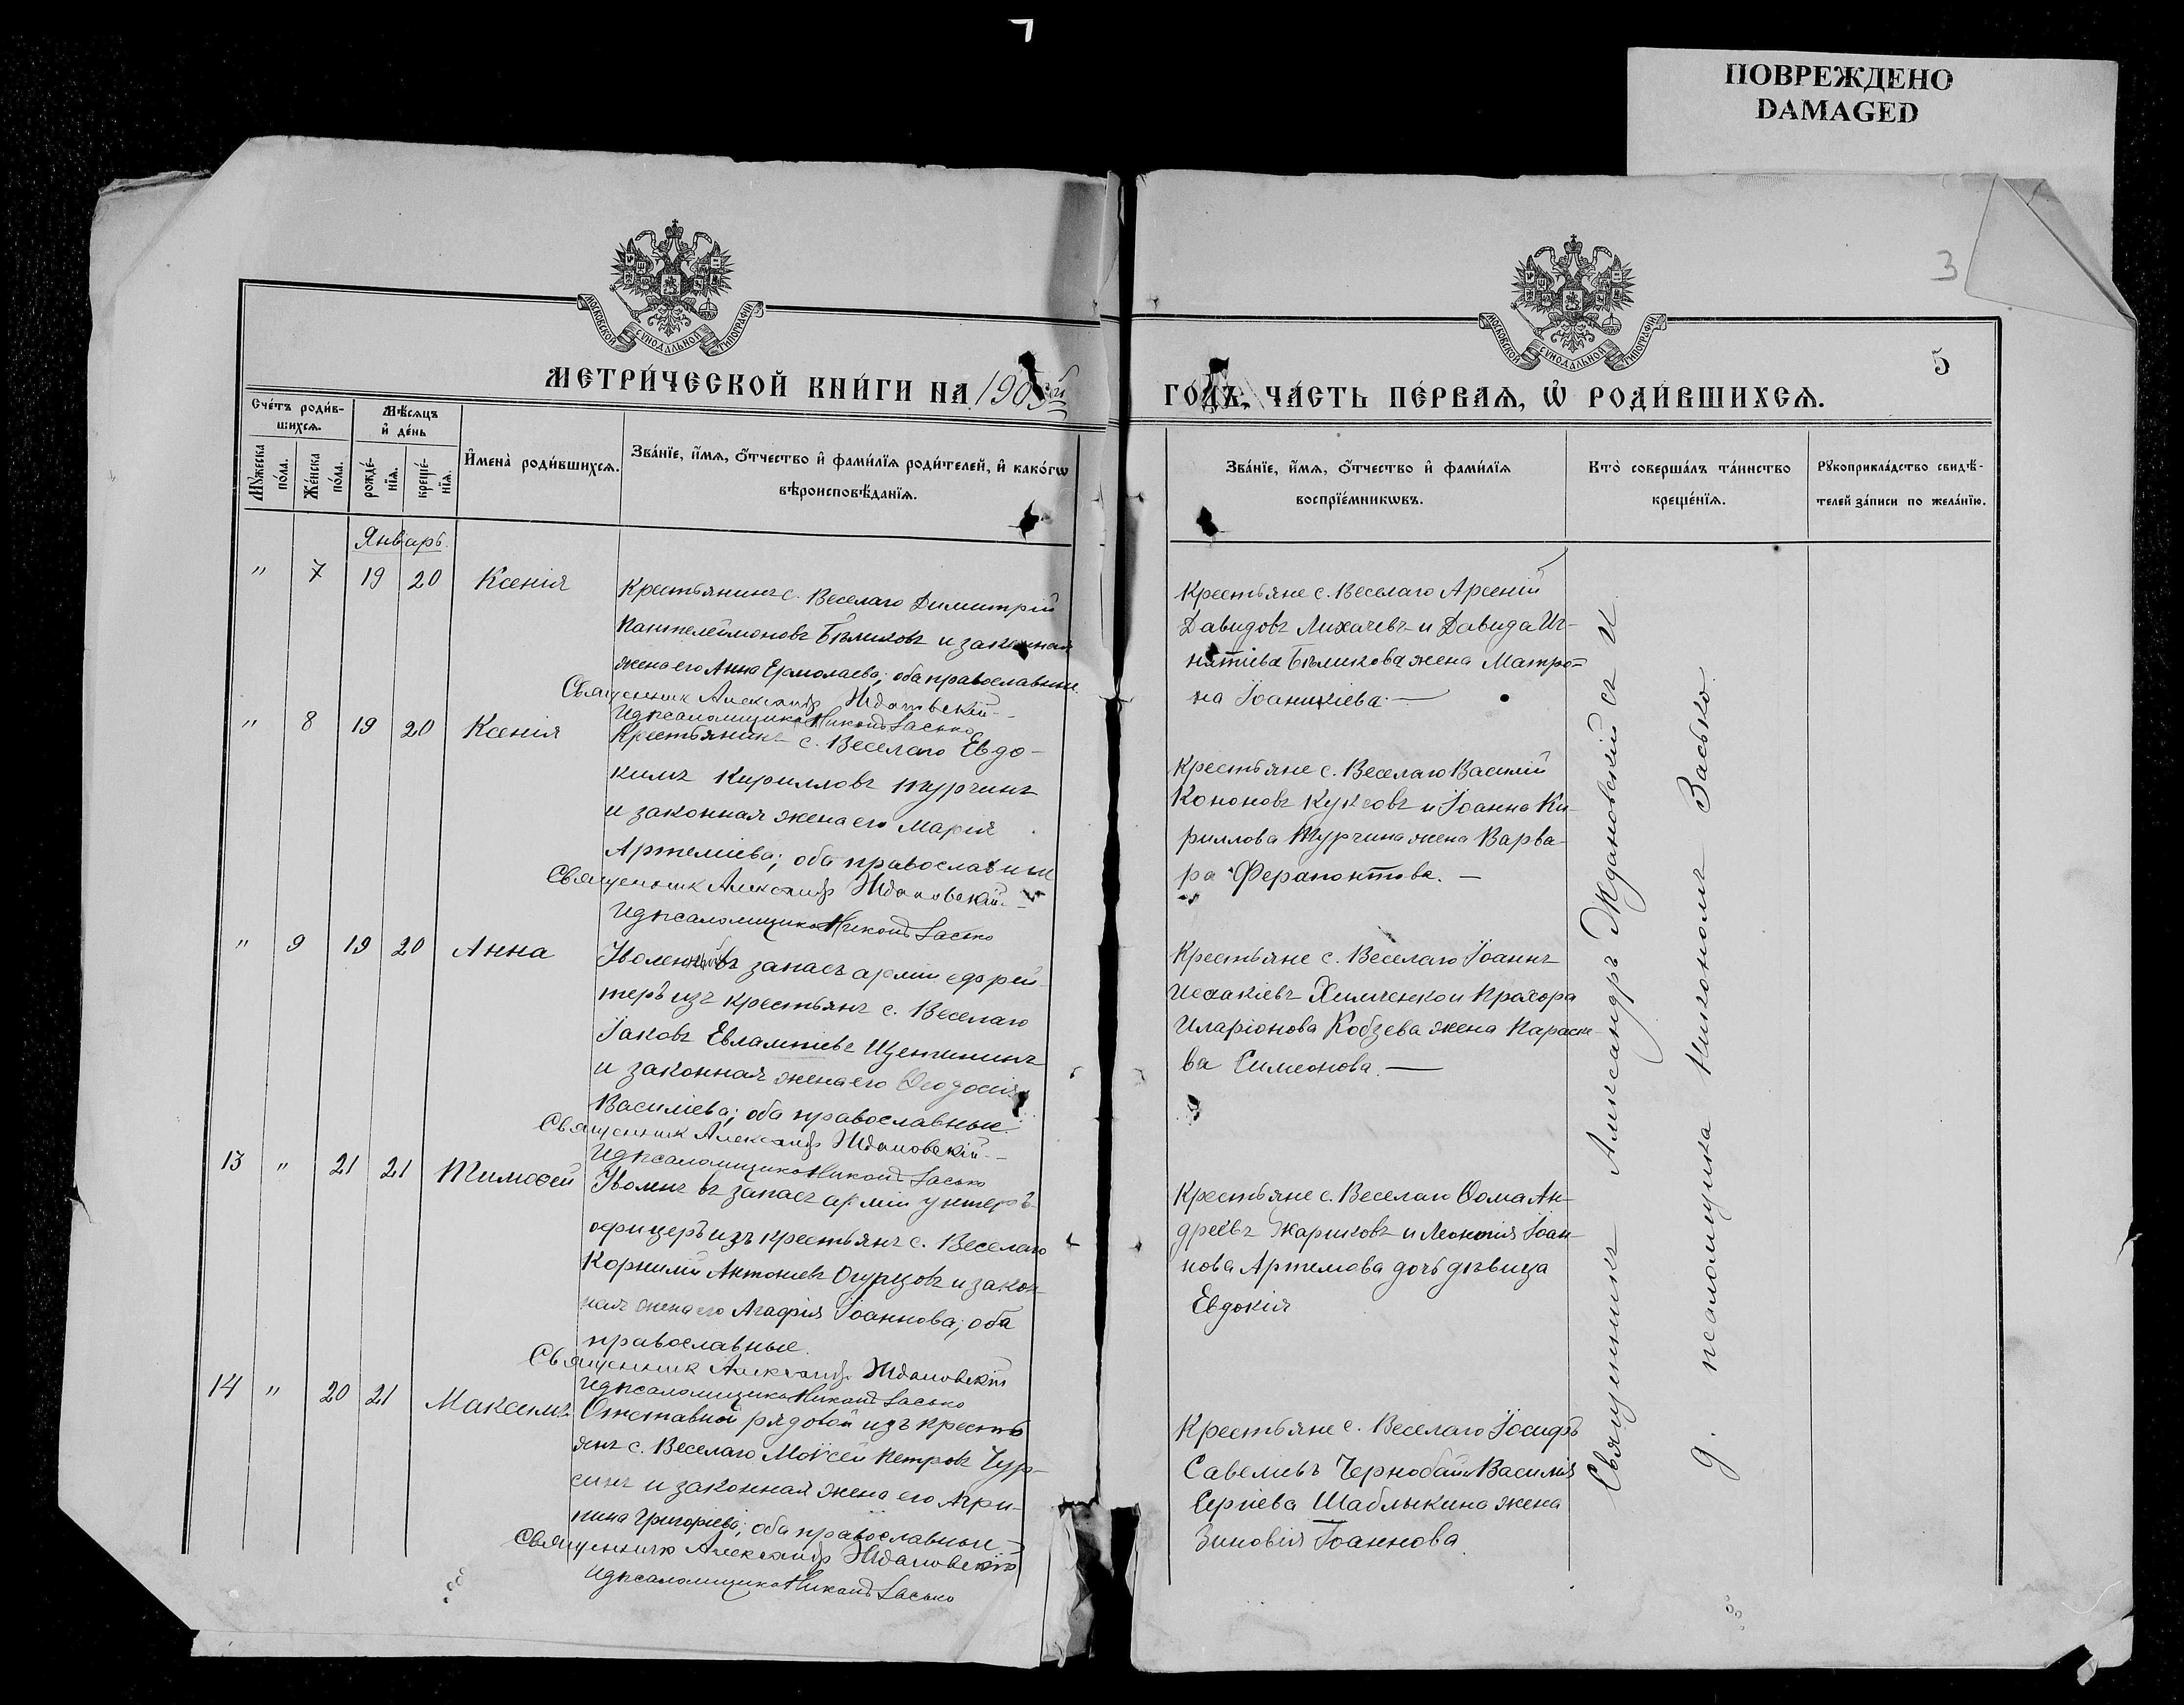 ПОВРЕЖДЕНО
DAMAGED
3
МОСКОВСКОЙ СУНОДАЛЬНОЙ ТИПОГРАФІИ
МОСКОВСКОЙ СУНОДАЛЬНОЙ ТИПОГРАФІИ
5
МЕТРИ́ЧЕСКОЙ КНИ́ГИ НА 1905
ГОДЪ, ЧА́СТЬ ПЕ́РВАѦ, Ѡ҆ РОДИ́ВШИХСѦ.
Сче́тъ роди́в-
шихсѧ.
Мѣ́сѧцъ
и҆ де́нь
Мꙋ́жеска
по́ла.
Же́нска
по́ла.
рожде́-
нїѧ.
креще́-
нїѧ.
И҆мена̀ роди́вшихсѧ.
Зва́нїе, и҆́мѧ, ѻ҆́тчество и҆ фамѝлїѧ роди́телей, и҆ како́гѡ
вѣроисповѣ́данїѧ.
Зва́нїе, и҆́мѧ, ѻ҆́тчество и҆ фамѝлїѧ
воспрїе́мникѡвъ.
Кто̀ соверша́лъ та́инство
креще́нїѧ.
Рꙋкоприкла́дство свидѣ́-
телей за́писи по жела́нїю.
Январь.
" 7 19 20 Ксенія
Крестьянинъ с. Веселаго Димитрій
Пантелеимоновъ Бѣликовъ и законная
жена его Анна Ермолаева; оба православные.
Священник Александр Ждановскій
И д псаломщика Никонъ Засько
Крестьяне с. Веселаго Арсеній
Давидовъ Лихачевъ и Давида Иг-
натіева Бѣликова жена Матро-
на Іоаникіева. —
" 8 19 20 Ксенія
Крестьянинъ с. Веселаго Евдо-
кимъ Кирилловъ Турчинъ
и законная жена его Марія
Артеміева; оба православные
Священник Александр Ждановскій
И д псаломщика Никонъ Засько
Крестьяне с. Веселаго Василій
Кононовъ Куксовъ и Іоанна Ки-
риллова Турчина жена Варва-
ра Ферапонтова. —
" 9 19 20 Анна
Уволенный въ запасъ арміи ефрей-
теръ изъ крестьянъ с. Веселаго
Іаковъ Евлампіевъ Щетининъ
и законная жена его Ѳеодосія
Василіева; оба православные.
Священник Александр Ждановскій
И д псаломщика Никонъ Засько
Крестьяне с. Веселаго Іоаннъ
Исаакіевъ Химченко и Прохора
Иларіонова Кобзева жена Параске-
ва Симеонова. —
13 " 21 21 Тимоѳей
Уволенъ въ запасъ арміи унтеръ-
офицеръ изъ крестьянъ с. Веселаго
Корнилій Антоніевъ Огурцовъ и закон-
ная жена его Агафія Іоаннова; оба
православные.
Священник Александр Ждановскій
И д псаломщика Никонъ Засько
Крестьяне с. Веселаго Ѳома Ан-
дреевъ Жариковъ и Леонтія Іоан-
нова Артемова дочь дѣвица
Евдокія
14 " 20 21 Максимъ
Отставной рядовой изъ кресть
янъ с. Веселаго Моѵсей Петровъ Чур-
синъ и законная жена его Агри-
пина Григоріева; оба православные
Священник Александр Ждановскій
И д псаломщика Никонъ Засько
Крестьяне с. Веселаго Іосифъ
Савеліевъ Чернобай и Василія
Сергіева Шаблыкина жена
Зиновія Іоаннова.
Священникъ Александръ Ждановскій съ и.
д. псаломщика Никономъ Засько.